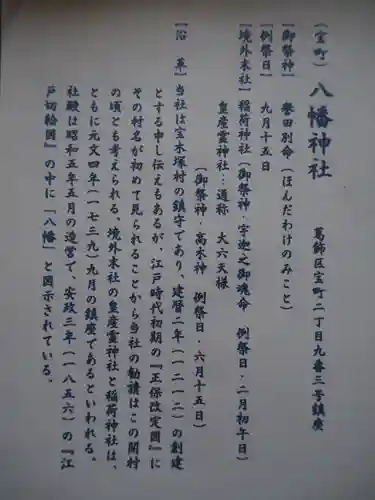 (宝町) 八幡神社 葛飾区宝町二丁目九番三号鎮座
【御祭神】 誉田別命(ほんだわけのみこと)
【例祭日】 九月十五日
【境外末社】稲荷神社(御祭神・宇迦之御魂命 例祭日・二月初午日)
皇産霊神社:通称 大六天様
(御祭神・高木神 例祭日・六月十五日)
【沿 革】当社は宝木塚村の鎮守であり、建暦二年(一二一二)の創建
とする申し伝えもあるが、江戸時代初期の『正保改定図』に
その村名が初めて見られることから当社の勧請はこの開村
の頃とも考えられる。境外末社の皇産霊神社と稲荷神社は、
ともに元文四年(一七三九)九月の鎮座であるといわれる。
社殿は昭和五年五月の造営で、安政三年(一八五六)の『江
戸切絵図』の中に「八幡」と図示されている。